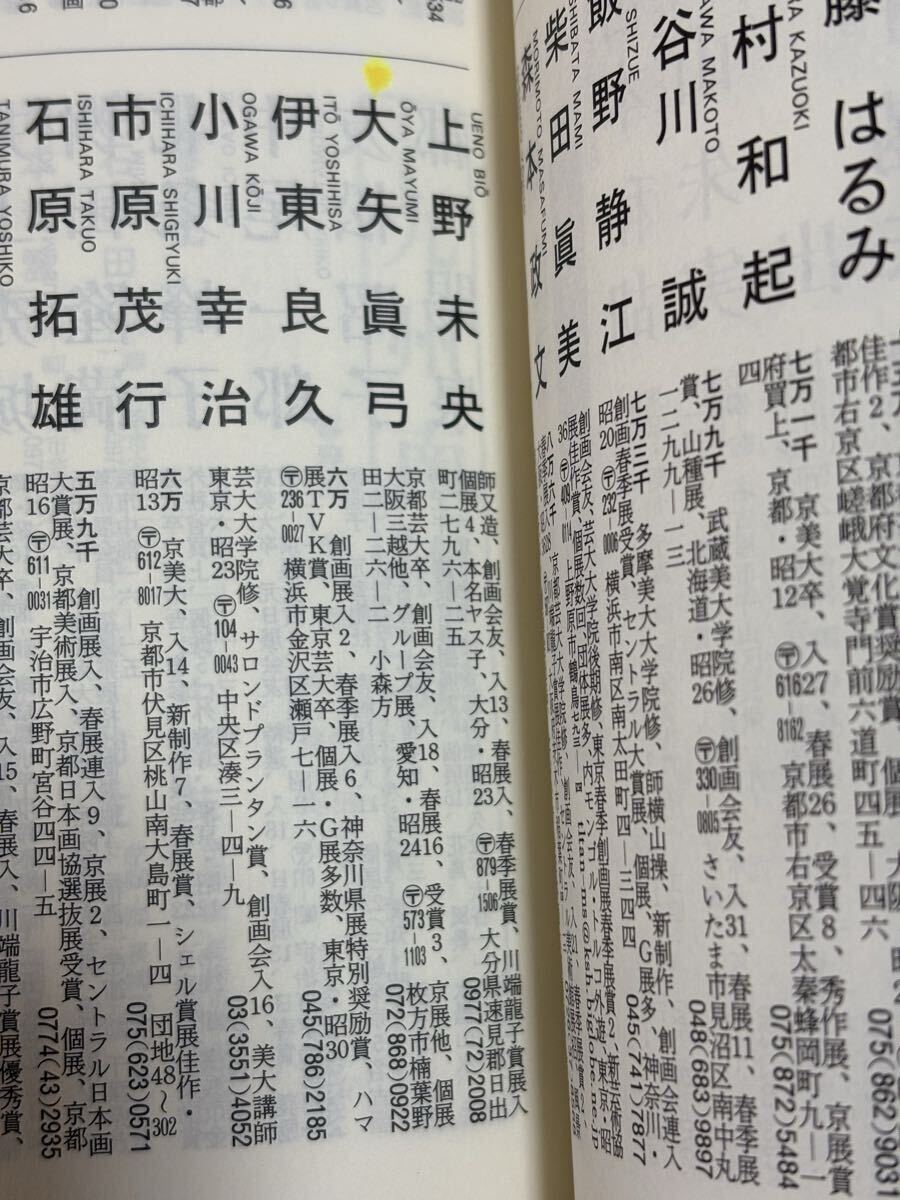 藤 はるみ
佳作2、京都府文化賞奨励賞、個展、大阪・昭
都市右京区嵯峨大覚寺門前六道町四五―四六
075(862)9031
RA KAZUOKI
村 和 起
七万一千 京美大卒、入27、春展26、受賞8、秀作展、京展賞
府買上、京都・昭12 〒616-8162 京都市右京区太秦蜂岡町九―一
四 075(872)5484
AWA MAKOTO
谷川 誠
七万九千 武蔵美大学院修、創画会友、入31、春展11、春季展
賞、山種展、北海道・昭26 〒330-0805 さいたま市見沼区南中丸
一二九九―一三 048(683)9897
SHIZUE
飯 野 静 江
七万三千 多摩美大大学院修、師横山操、新制作、創画会連入
創画春季展受賞、セントラル大賞展、個展、G展多、神奈川・
昭20 〒232-0006 横浜市南区南太田町四―三四 045(741)7877
SHIBATA MAMI
柴 田 眞 美
創画会友、芸大大学院後期修、東京春季創画展春季展賞2、
展佳作賞、個展数回、団体展多、内モンゴル・トルコ外遊、東京・昭
36 〒409-0114 上野原市鶴島
MORIMOTO MASAFUMI
森 本 政 文
UENO BIŌ
上 野 未 央
師又造、創画会友、入13、春展入、春季展賞、川端龍子賞展入
個展4、本名ヤス子、大分・昭23 〒879-1506 大分県速見郡日出
町二七九六―二五 0977(72)2008
ŌYA MAYUMI
大 矢 眞 弓
京都芸大卒、創画会友、入18、春展16、受賞3、京展他、個展
大阪三越他、グループ展、愛知・昭24 〒573-1103 枚方市楠葉野
田二―二六―二 小森方 072(868)0922
ITŌ YOSHIHISA
伊 東 良 久
六万 創画展入2、春季展入6、神奈川県展特別奨励賞、ハマ
展TVK賞、東京芸大卒、個展・G展多数、東京・昭30
〒236-0027 横浜市金沢区瀬戸七―一六 045(786)2185
OGAWA KŌJI
小 川 幸 治
芸大大学院修、サロンドプランタン賞、創画会入16、美大講師
東京・昭23 〒104-0043 中央区湊三―四―九 03(3551)4052
ICHIHARA SHIGEYUKI
市 原 茂 行
六万 京美大、入14、新制作7、春展賞、シェル賞展佳作・
昭13 〒612-8017 京都市伏見区桃山南大島町一―四 団地48〜302
075(623)0571
ISHIHARA TAKUO
石 原 拓 雄
五万九千 創画展入、春展連入9、京展2、セントラル日本画
大賞展、京都美術展入、京都日本画協選抜展受賞、個展、京都
昭16 〒611-0031 宇治市広野町宮谷四四―五 0774(43)2935
TANIMURA YOSHIKO
京都芸大卒、創画会友、入15、春展入、川端龍子賞展優秀賞、